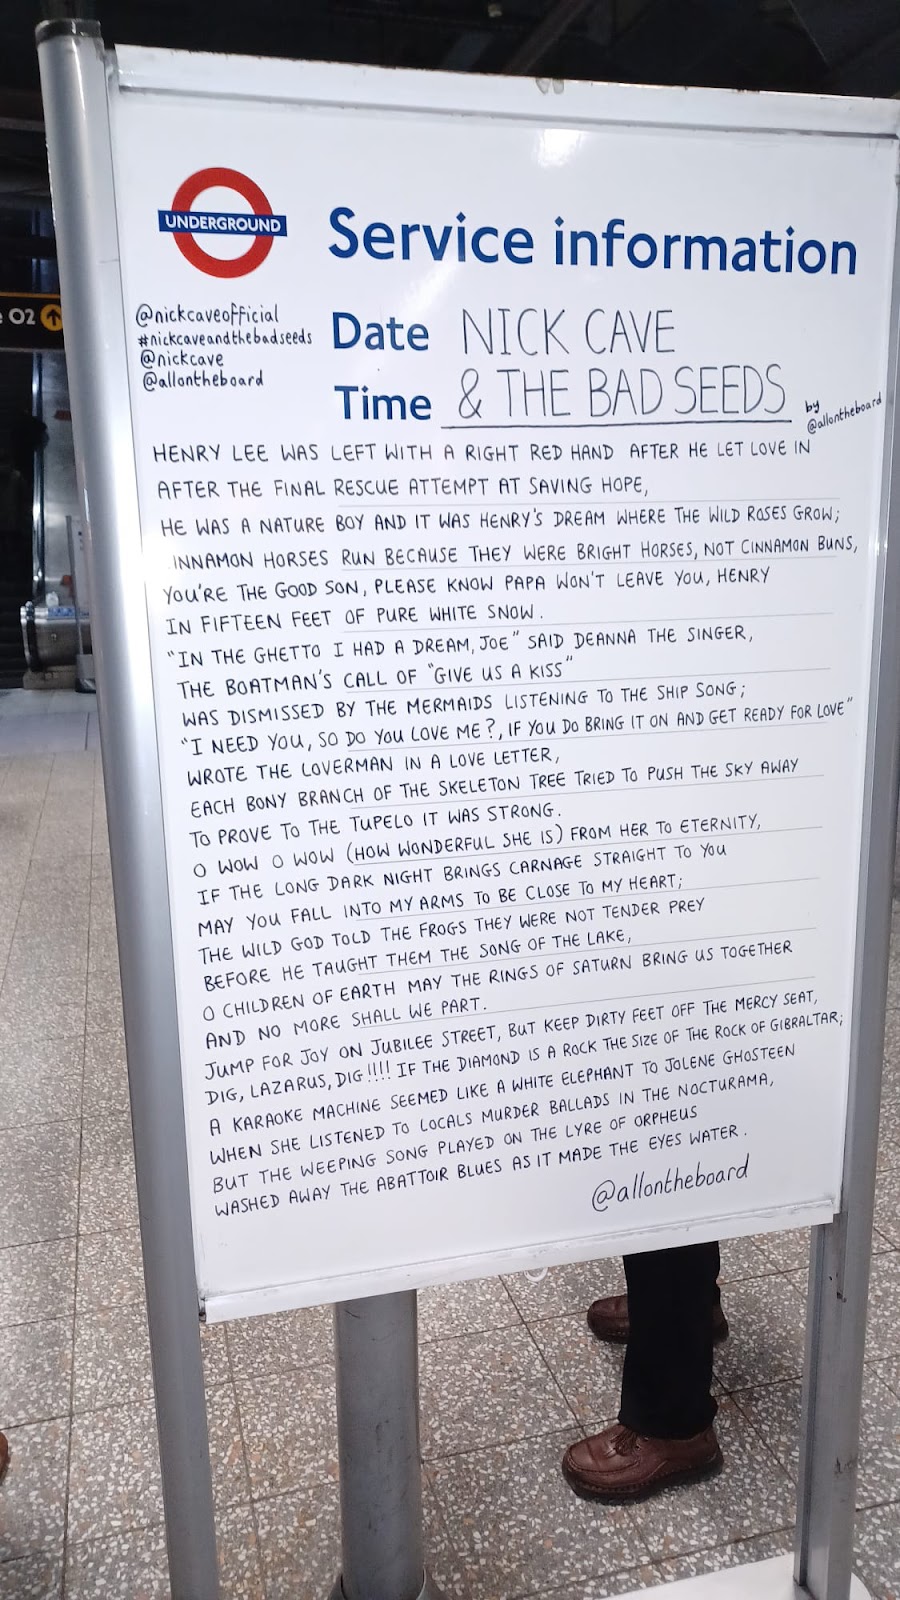 UNDERGROUND
Service information
@nickcaveofficial
#nickcaveandthebadseeds
@nickcave
@allontheboard
Date NICK CAVE
Time & THE BAD SEEDS
by
@allontheboard
HENRY LEE WAS LEFT WITH A RIGHT RED HAND AFTER HE LET LOVE IN
AFTER THE FINAL RESCUE ATTEMPT AT SAVING HOPE,
HE WAS A NATURE BOY AND IT WAS HENRY'S DREAM WHERE THE WILD ROSES GROW;
INNAMON HORSES RUN BECAUSE THEY WERE BRIGHT HORSES, NOT CINNAMON BUNS,
YOU'RE THE GOOD SON, PLEASE KNOW PAPA WON'T LEAVE YOU, HENRY
IN FIFTEEN FEET OF PURE WHITE SNOW.
"IN THE GHETTO I HAD A DREAM, JOE" SAID DEANNA THE SINGER,
THE BOATMAN'S CALL OF "GIVE US A KISS"
WAS DISMISSED BY THE MERMAIDS LISTENING TO THE SHIP SONG;
"I NEED YOU, SO DO YOU LOVE ME?, IF YOU DO BRING IT ON AND GET READY FOR LOVE"
WROTE THE LOVERMAN IN A LOVE LETTER,
EACH BONY BRANCH OF THE SKELETON TREE TRIED TO PUSH THE SKY AWAY
TO PROVE TO THE TUPELO IT WAS STRONG.
O WOW O WOW (HOW WONDERFUL SHE IS) FROM HER TO ETERNITY,
IF THE LONG DARK NIGHT BRINGS CARNAGE STRAIGHT TO YOU
MAY YOU FALL INTO MY ARMS TO BE CLOSE TO MY HEART;
THE WILD GOD TOLD THE FROGS THEY WERE NOT TENDER PREY
BEFORE HE TAUGHT THEM THE SONG OF THE LAKE,
O CHILDREN OF EARTH MAY THE RINGS OF SATURN BRING US TOGETHER
AND NO MORE SHALL WE PART.
JUMP FOR JOY ON JUBILEE STREET, BUT KEEP DIRTY FEET OFF THE MERCY SEAT,
DIG, LAZARUS, DIG!!!! IF THE DIAMOND IS A ROCK THE SIZE OF THE ROCK OF GIBRALTAR;
A KARAOKE MACHINE SEEMED LIKE A WHITE ELEPHANT TO JOLENE GHOSTEEN
WHEN SHE LISTENED TO LOCALS MURDER BALLADS IN THE NOCTURAMA,
BUT THE WEEPING SONG PLAYED ON THE LYRE OF ORPHEUS
WASHED AWAY THE ABATTOIR BLUES AS IT MADE THE EYES WATER.
@allontheboard
O2